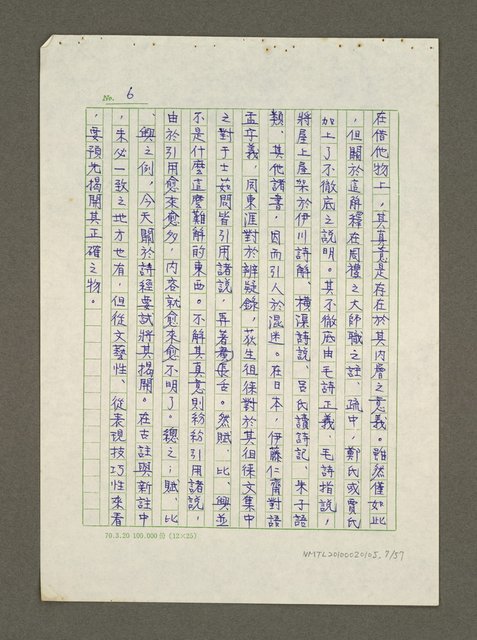 No. 6
在借他物上，其真意是存在於其內層之意義。雖然僅如此
，但關於這解釋在周禮之大師職之註、疏中，鄭氏或賈氏
加上了不徹底之說明。其不徹底由毛詩正義、毛詩指說，
將屋上屋架於伊川詩解、橫渠詩說、呂氏讀詩記、朱子語
類、其他諸書，因而引人於混迷。在日本，伊藤仁齋對語
孟字義，周東涯對於辨疑錄，荻生徂徠對於其徂徠文集中
之對于士茹問皆引用諸說，再著長舌。然賦、比、興並
不是什麼這麼難解的東西。不解其真意則紛紛引用諸說，
由於引用愈來愈多，內容就愈來愈不明了。總之；賦、比
、興之例，今天關於詩經要試將其揭開。在古註與新註中
，未必一致之地方也有，但從文藝性、從表現技巧性來看
，要預先揭開其正確之物。
70.3.20 100.000份 (12×25)
NMTL20100020105. 7/57